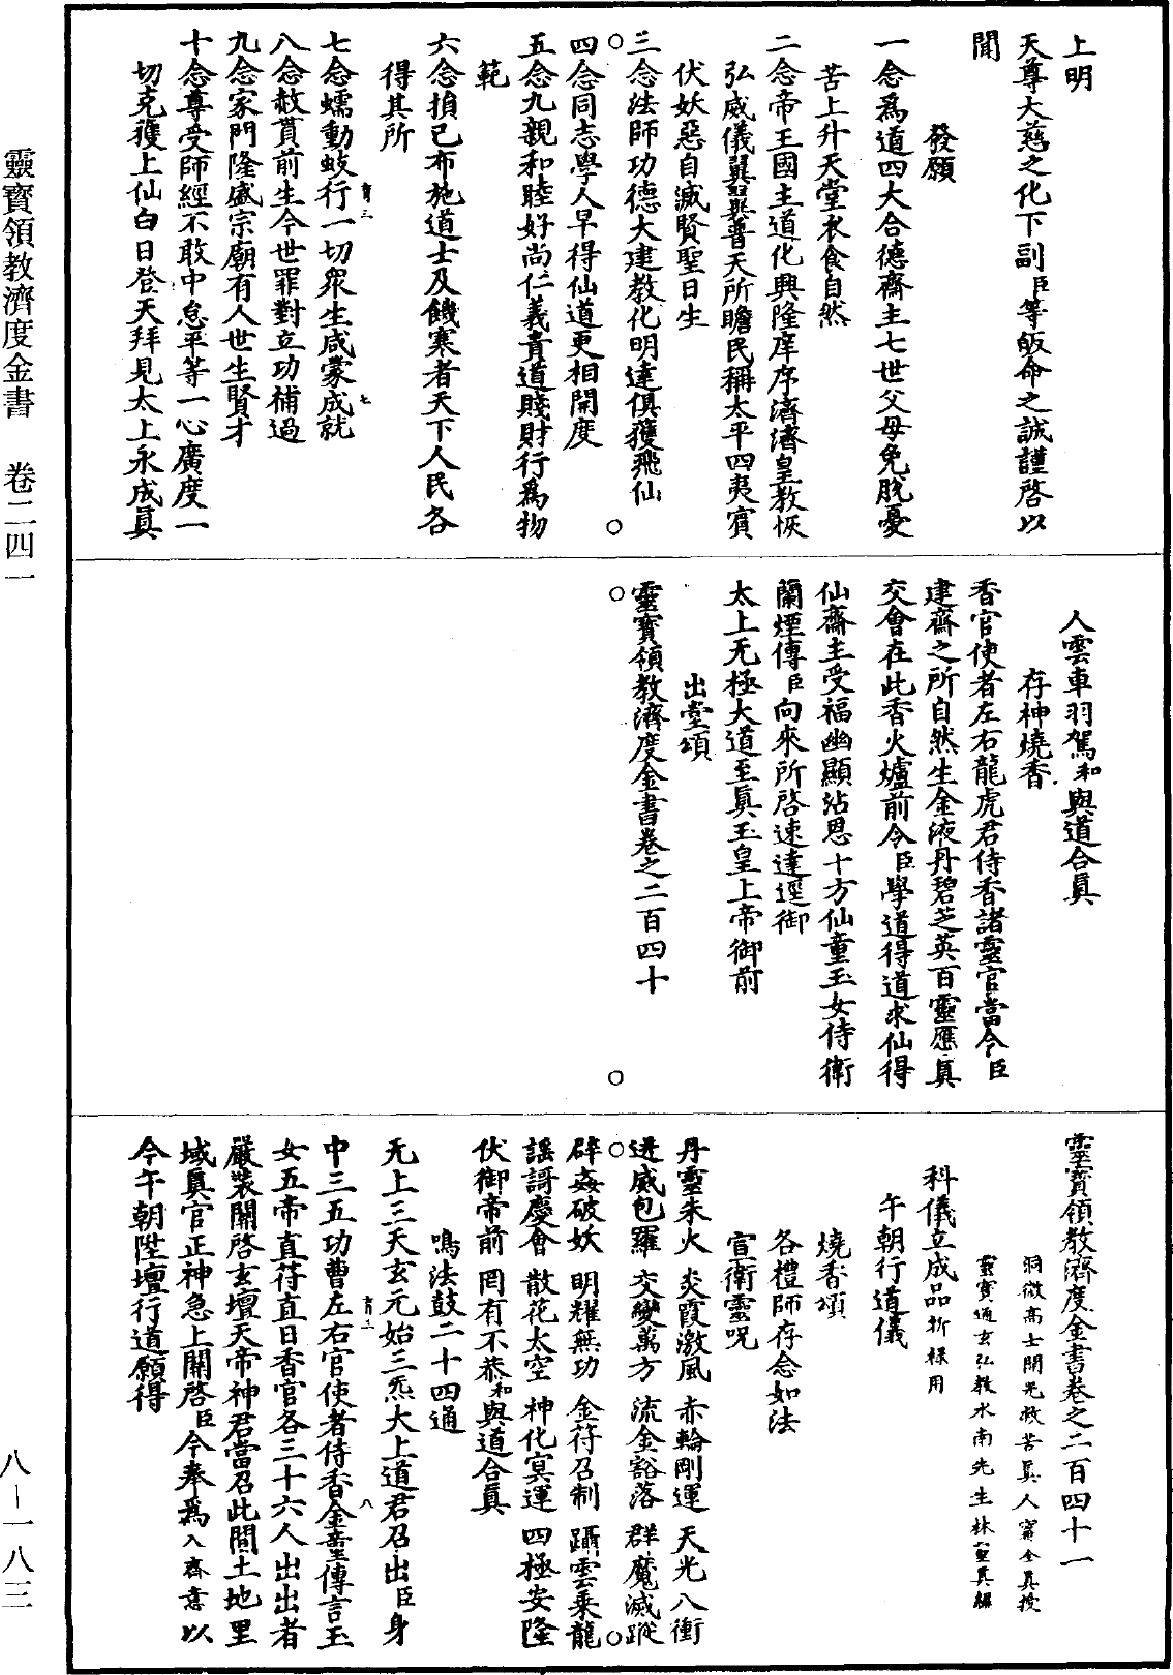 上明
天尊大慈之化下副臣等皈命之誠謹啓以
聞
發願
一念為道四大合德齋主七世父母免脫憂
苦上升天堂衣食自然
二念帝王國主道化興隆庠序濟濟皇教恢
弘威儀翼翼普天所瞻民稱太平四夷賓
伏妖惡自滅賢聖日生
三念法師功德大建教化明達俱獲飛仙
四念同志學人早得仙道更相開度
五念九親和睦好尚仁義貴道賤財行爲物
範
六念損己布施道士及饑寒者天下人民各
得其所
七念蠕動蚑行一切衆生咸蒙成就
八念赦貰前生今世罪對立功補過
九念家門隆盛宗廟有人世生賢才
十念尊受師經不敢中怠平等一心廣度一
切克獲上仙白日登天拜見太上永成眞
人雲車羽駕和與道合眞
存神燒香
香官使者左右龍虎君侍香諸靈官當令臣
建齋之所自然生金液丹碧芝英百靈應眞
交會在此香火爐前令臣學道得道求仙得
仙齋主受福幽顯沾恩十方仙童玉女侍衛
蘭煙傳臣向來所啓速達逕御
太上无極大道至眞玉皇上帝御前
出堂頌
靈寶領教濟度金書卷之二百四十
靈寶領教濟度金書卷之二百四十一
洞微高士開光救苦眞人甯全眞授
靈寶通玄弘教水南先生林靈眞編
科儀立成品祈禳用
午朝行道儀
燒香頌
各禮師存念如法
宣衛靈呪
丹靈朱火 炎霞激風 赤輪剛運 天光八衝
迸威包羅 交變萬方 流金豁落 群魔滅蹤
辟姦破妖 明耀無功 金符召制 躡雲乘龍
謡謌慶會 散花太空 神化冥運 四極安隆
伏御帝前 罔有不恭和與道合眞
鳴法鼓二十四通
无上三天玄元始三炁太上道君召出臣身
中三五功曹左右官使者侍香金童傳言玉
女五帝直符直日香官各三十六人出出者
嚴裝關啓玄壇天帝神君當召此間土地里
域眞官正神急上關啓臣今奉爲入齋意以
今午朝陞壇行道願得
靈寶領教濟度金書 卷二四一
八-一八三